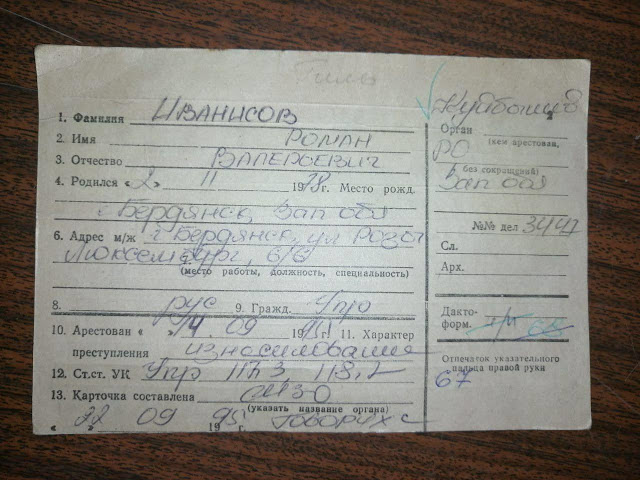 1. Фамилия ИВАНИСОВ
2. Имя РОМАН
3. Отчество ВАЛЕРЬЕВИЧ
4. Родился « 2 » 11 19 78 г. Место рожд.
г. Бердянск, Зап обл
6. Адрес м/ж г Бердянск, ул Розы
Люксембург, 6/6
(место работы, должность, специальность)
8. рус 9. Гражд. Укр
10. Арестован « 14 09 19 95 г. 11. Характер
преступления изнасилования
12. Ст.ст. УК Укр 117 3 118,2
13. Карточка составлена
(указать название органа)
« 22 » 09 19 95
Куйбышев
Орган (кем арестован,
РО
без сокращений)
Зап обл
№№ дел 3447
Сл.
Арх.
Дакто-
форм.
Отпечаток указательного
пальца правой руки
67